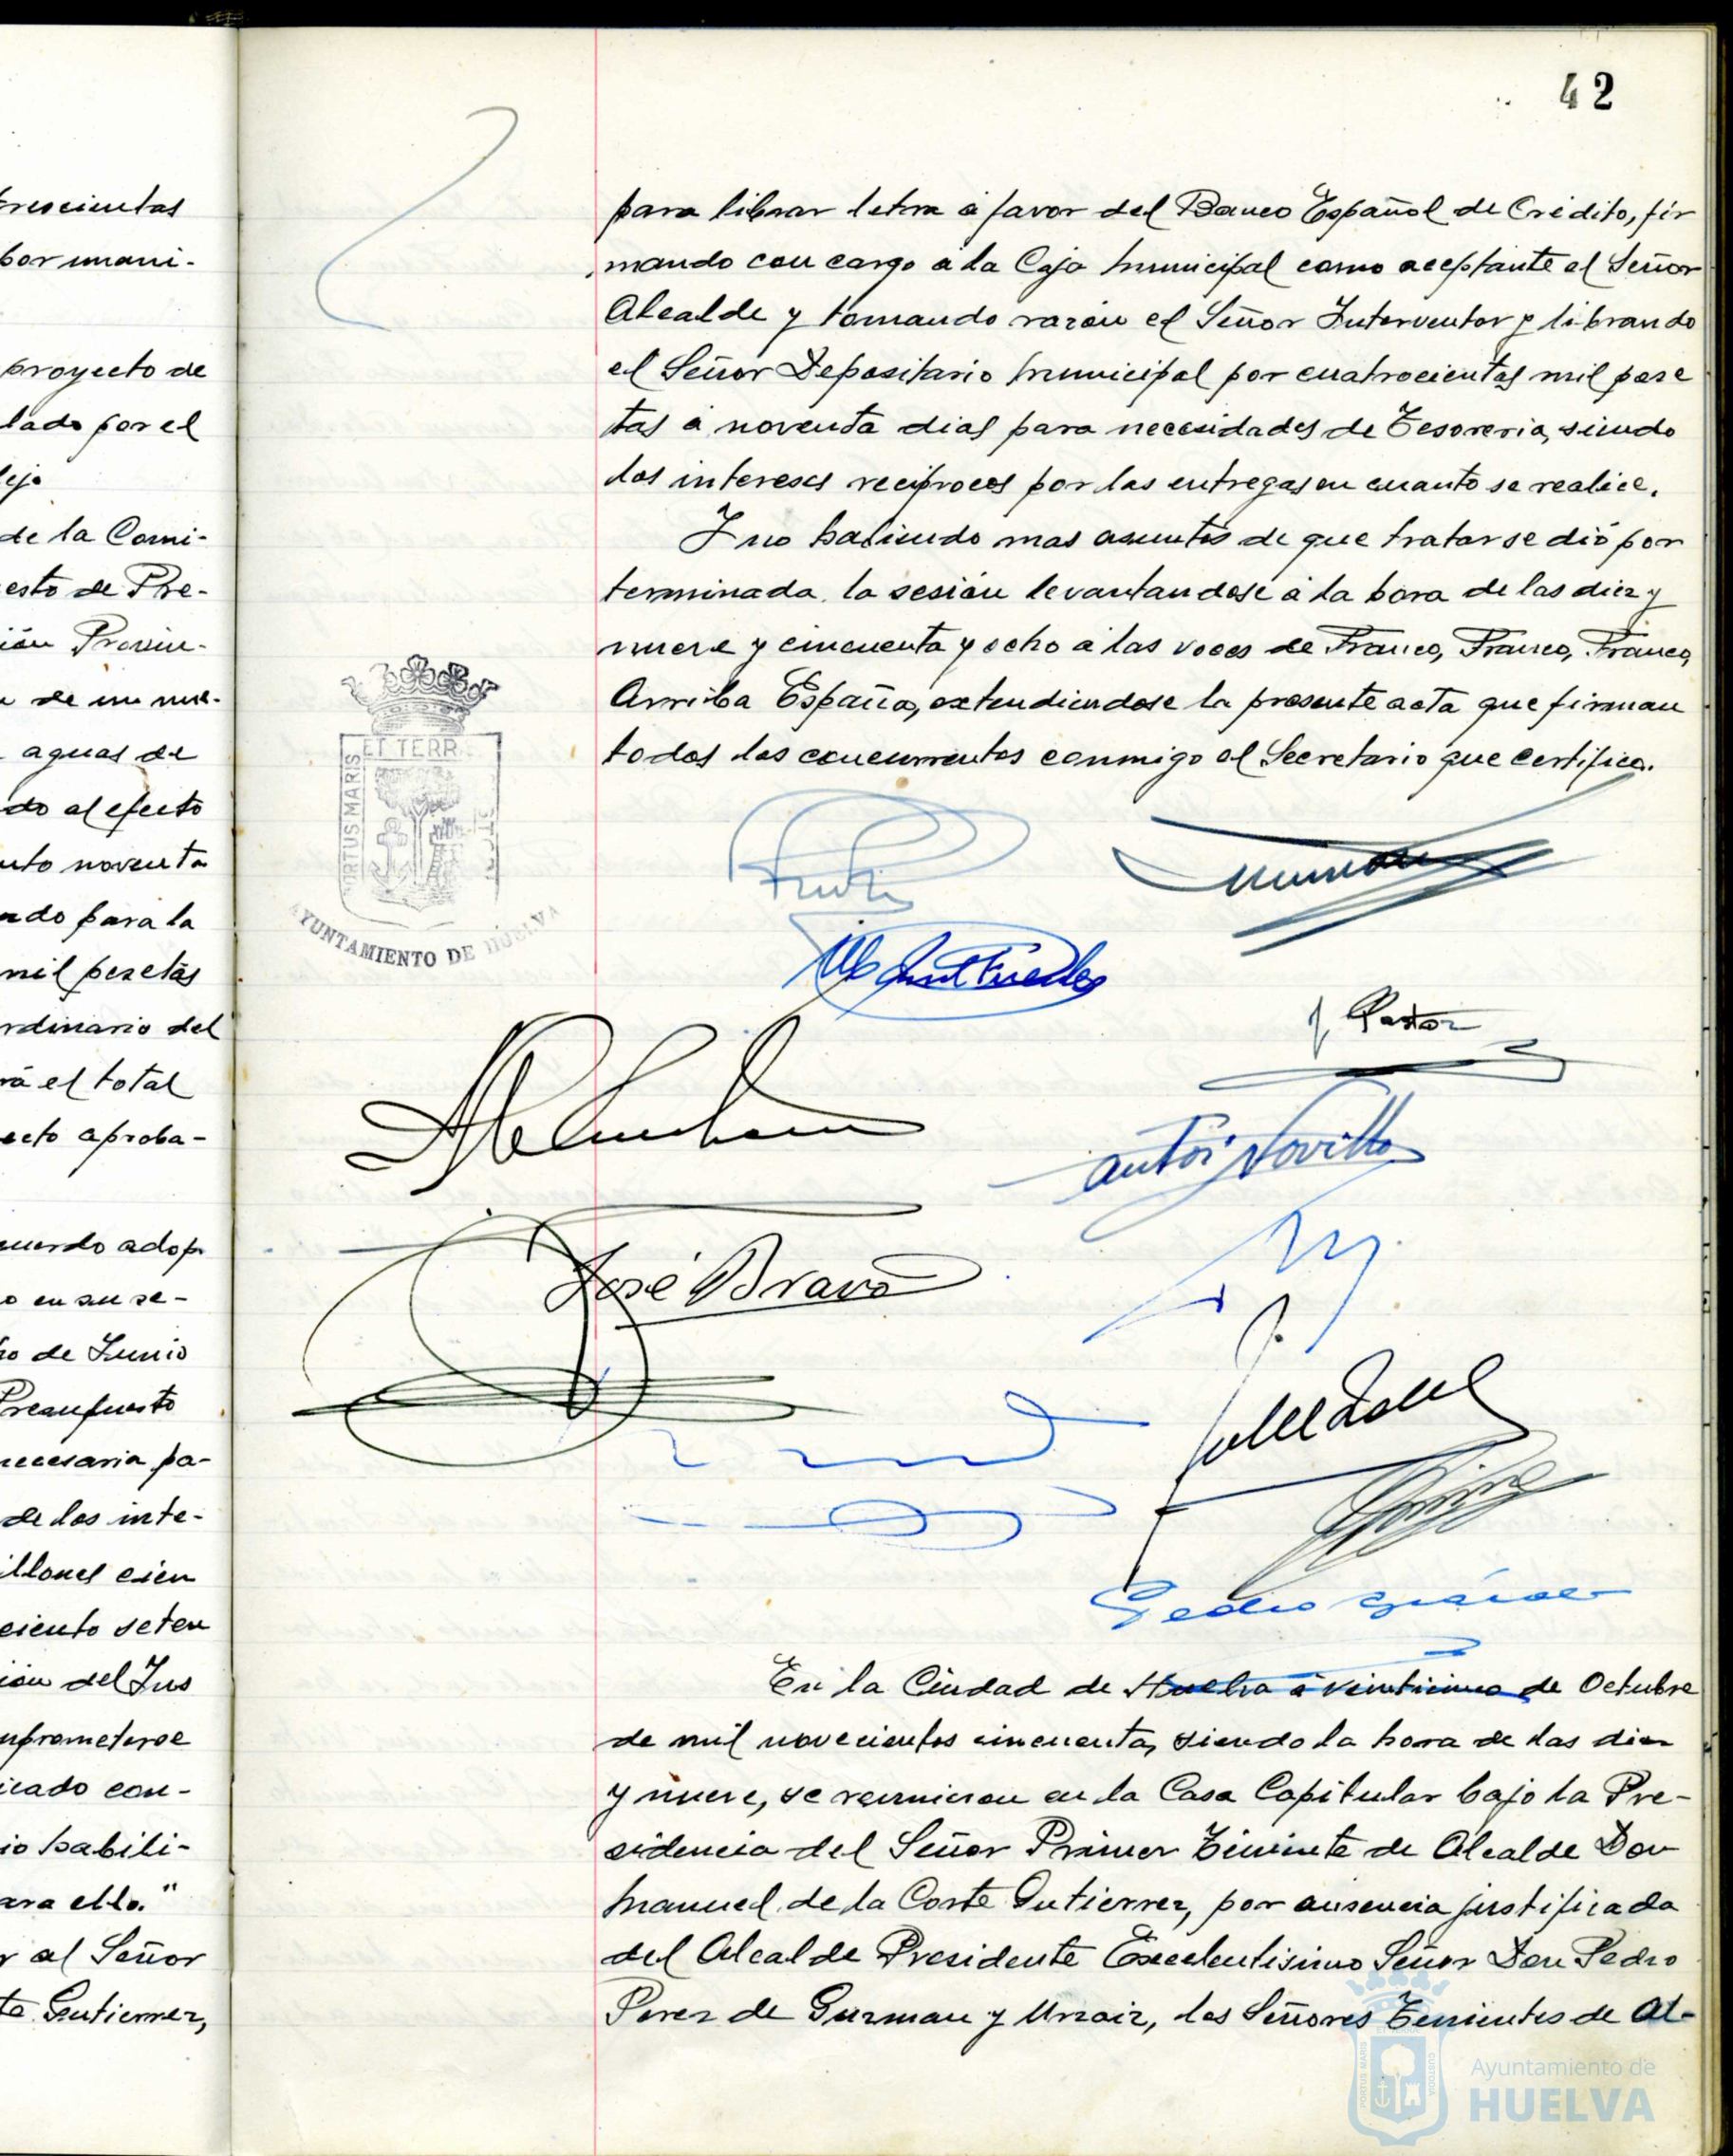 42
trescientas
por unani-
proyecto de
lado por el
lejo
de la Comi-
esto de Pre-
ión Provin-
de un nue-
aguas de
do al efecto
nto noventa
ndo para la
mil pesetas
rdinario del
rá el total
ecto aproba-
uerdo adop
o en su se-
ro de Junio
Presupuesto
necesaria pa-
de los inte-
illones cien
ciento seten
ión del Ins
mprometerse
icado con-
io habili-
ara ello."
r al Señor
te Gutierrez,
para librar letra á favor del Banco Español de Crédito, fir
mando con cargo a la Caja Municipal como aceptante el Señor
Alcalde y tomando razón el Señor Interventor y librando
el Señor Depositario Municipal por cuatrocientas mil pese
tas á noventa dias para necesidades de Tesoreria, siendo
los intereses reciprocos por las entregas en cuanto se realice.
Y no habiendo mas asuntos de que tratar se dió por
terminada la sesión levantandose á la hora de las diez y
nueve y cincuenta y ocho a las voces de Franco, Franco, Franco,
Arriba España, extendiendose la presente acta que firman
todos los concurrentes conmigo el Secretario que certifico.
ET TERR
PORTUS MARIS
AYUNTAMIENTO DE HUELVA
J. Pastor
José Bravo
En la Ciudad de Huelva á veinticinco de Octubre
de mil novecientos cincuenta, siendo la hora de las diez
y nueve, se reunieron en la Casa Capitular bajo la Pre-
sidencia del Señor Primer Teniente de Alcalde Don
Manuel de la Corte Gutierrez, por ausencia justificada
del Alcalde Presidente Excelentisimo Señor Don Pedro
Perez de Guzman y Urzaiz, los Señores Tenientes de Al-
PORTUS MARIS
ET TERRAE
CUSTODIA
Ayuntamiento de
HUELVA